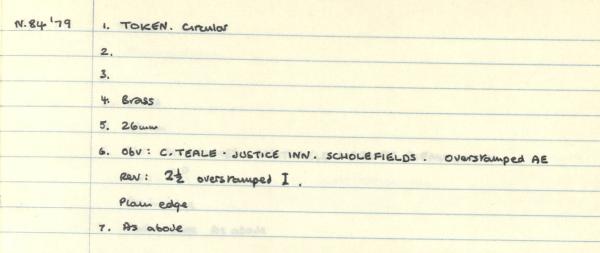 N.84 '79 1. TOKEN. Circular
2.
3.
4. Brass
5. 26mm
6. Obv: C. TEALE · JUSTICE INN. SCHOLEFIELDS. Overstamped AE
Rev: 2½ overstamped I.
Plain edge
7. As above